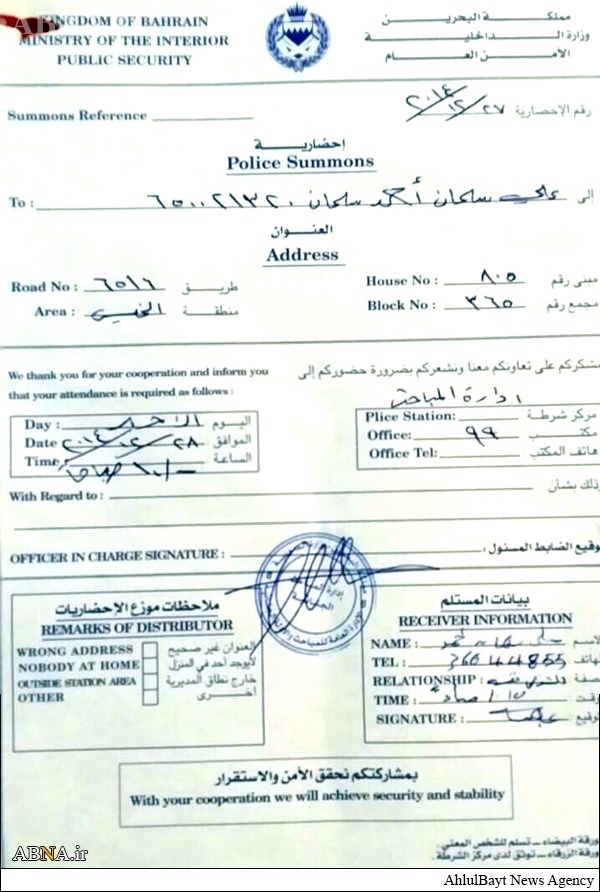 KINGDOM OF BAHRAIN
MINISTRY OF THE INTERIOR
PUBLIC SECURITY
مملكة البحرين
وزارة الداخلية
الأمن العام
Summons Reference
٢٠١٤/١٢/٢٧ رقم الإحضارية
إحضارية
Police Summons
To : علي سلمان أحمد سلمان ٦٥٠٠٢١٣٢٠ إلى
العنوان
Address
Road No : ٦٥١٦ طريق
House No : ٨٠٥ مبنى رقم
Area : الخميس منطقة
Block No : ٣٦٥ مجمع رقم
We thank you for your cooperation and inform you
that your attendance is required as follows :
نشكركم على تعاونكم معنا ونشعركم بضرورة حضوركم إلى
ادارة المباحث
Day : الاحد اليوم
Date ٢٠١٤/١٢/٢٨ الموافق
Time الساعة
Plice Station: مركز شرطة
Office: ٩٩ مكتب
Office Tel: هاتف المكتب
With Regard to : وذلك بشأن
OFFICER IN CHARGE SIGNATURE : توقيع الضابط المسئول :
ملاحظات موزع الإحضاريات
REMARKS OF DISTRIBUTOR
WRONG ADDRESS العنوان غير صحيح
NOBODY AT HOME لايوجد أحد في المنزل
OUTSIDE STATION AREA خارج نطاق المديرية
OTHER أخرى
بيانات المستلم
RECEIVER INFORMATION
NAME : الاسم
TEL : 36044855 هاتف
RELATIONSHIP : صفة
TIME : وقت
SIGNATURE : توقيع
بمشاركتكم نحقق الأمن والاستقرار
With your cooperation we will achieve security and stability
ورقة البيضاء ــ تسلم للشخص المعني.
ورقة الزرقاء ــ توثق لدى مركز الشرطة.
ABNA.ir
AhlulBayt News Agency